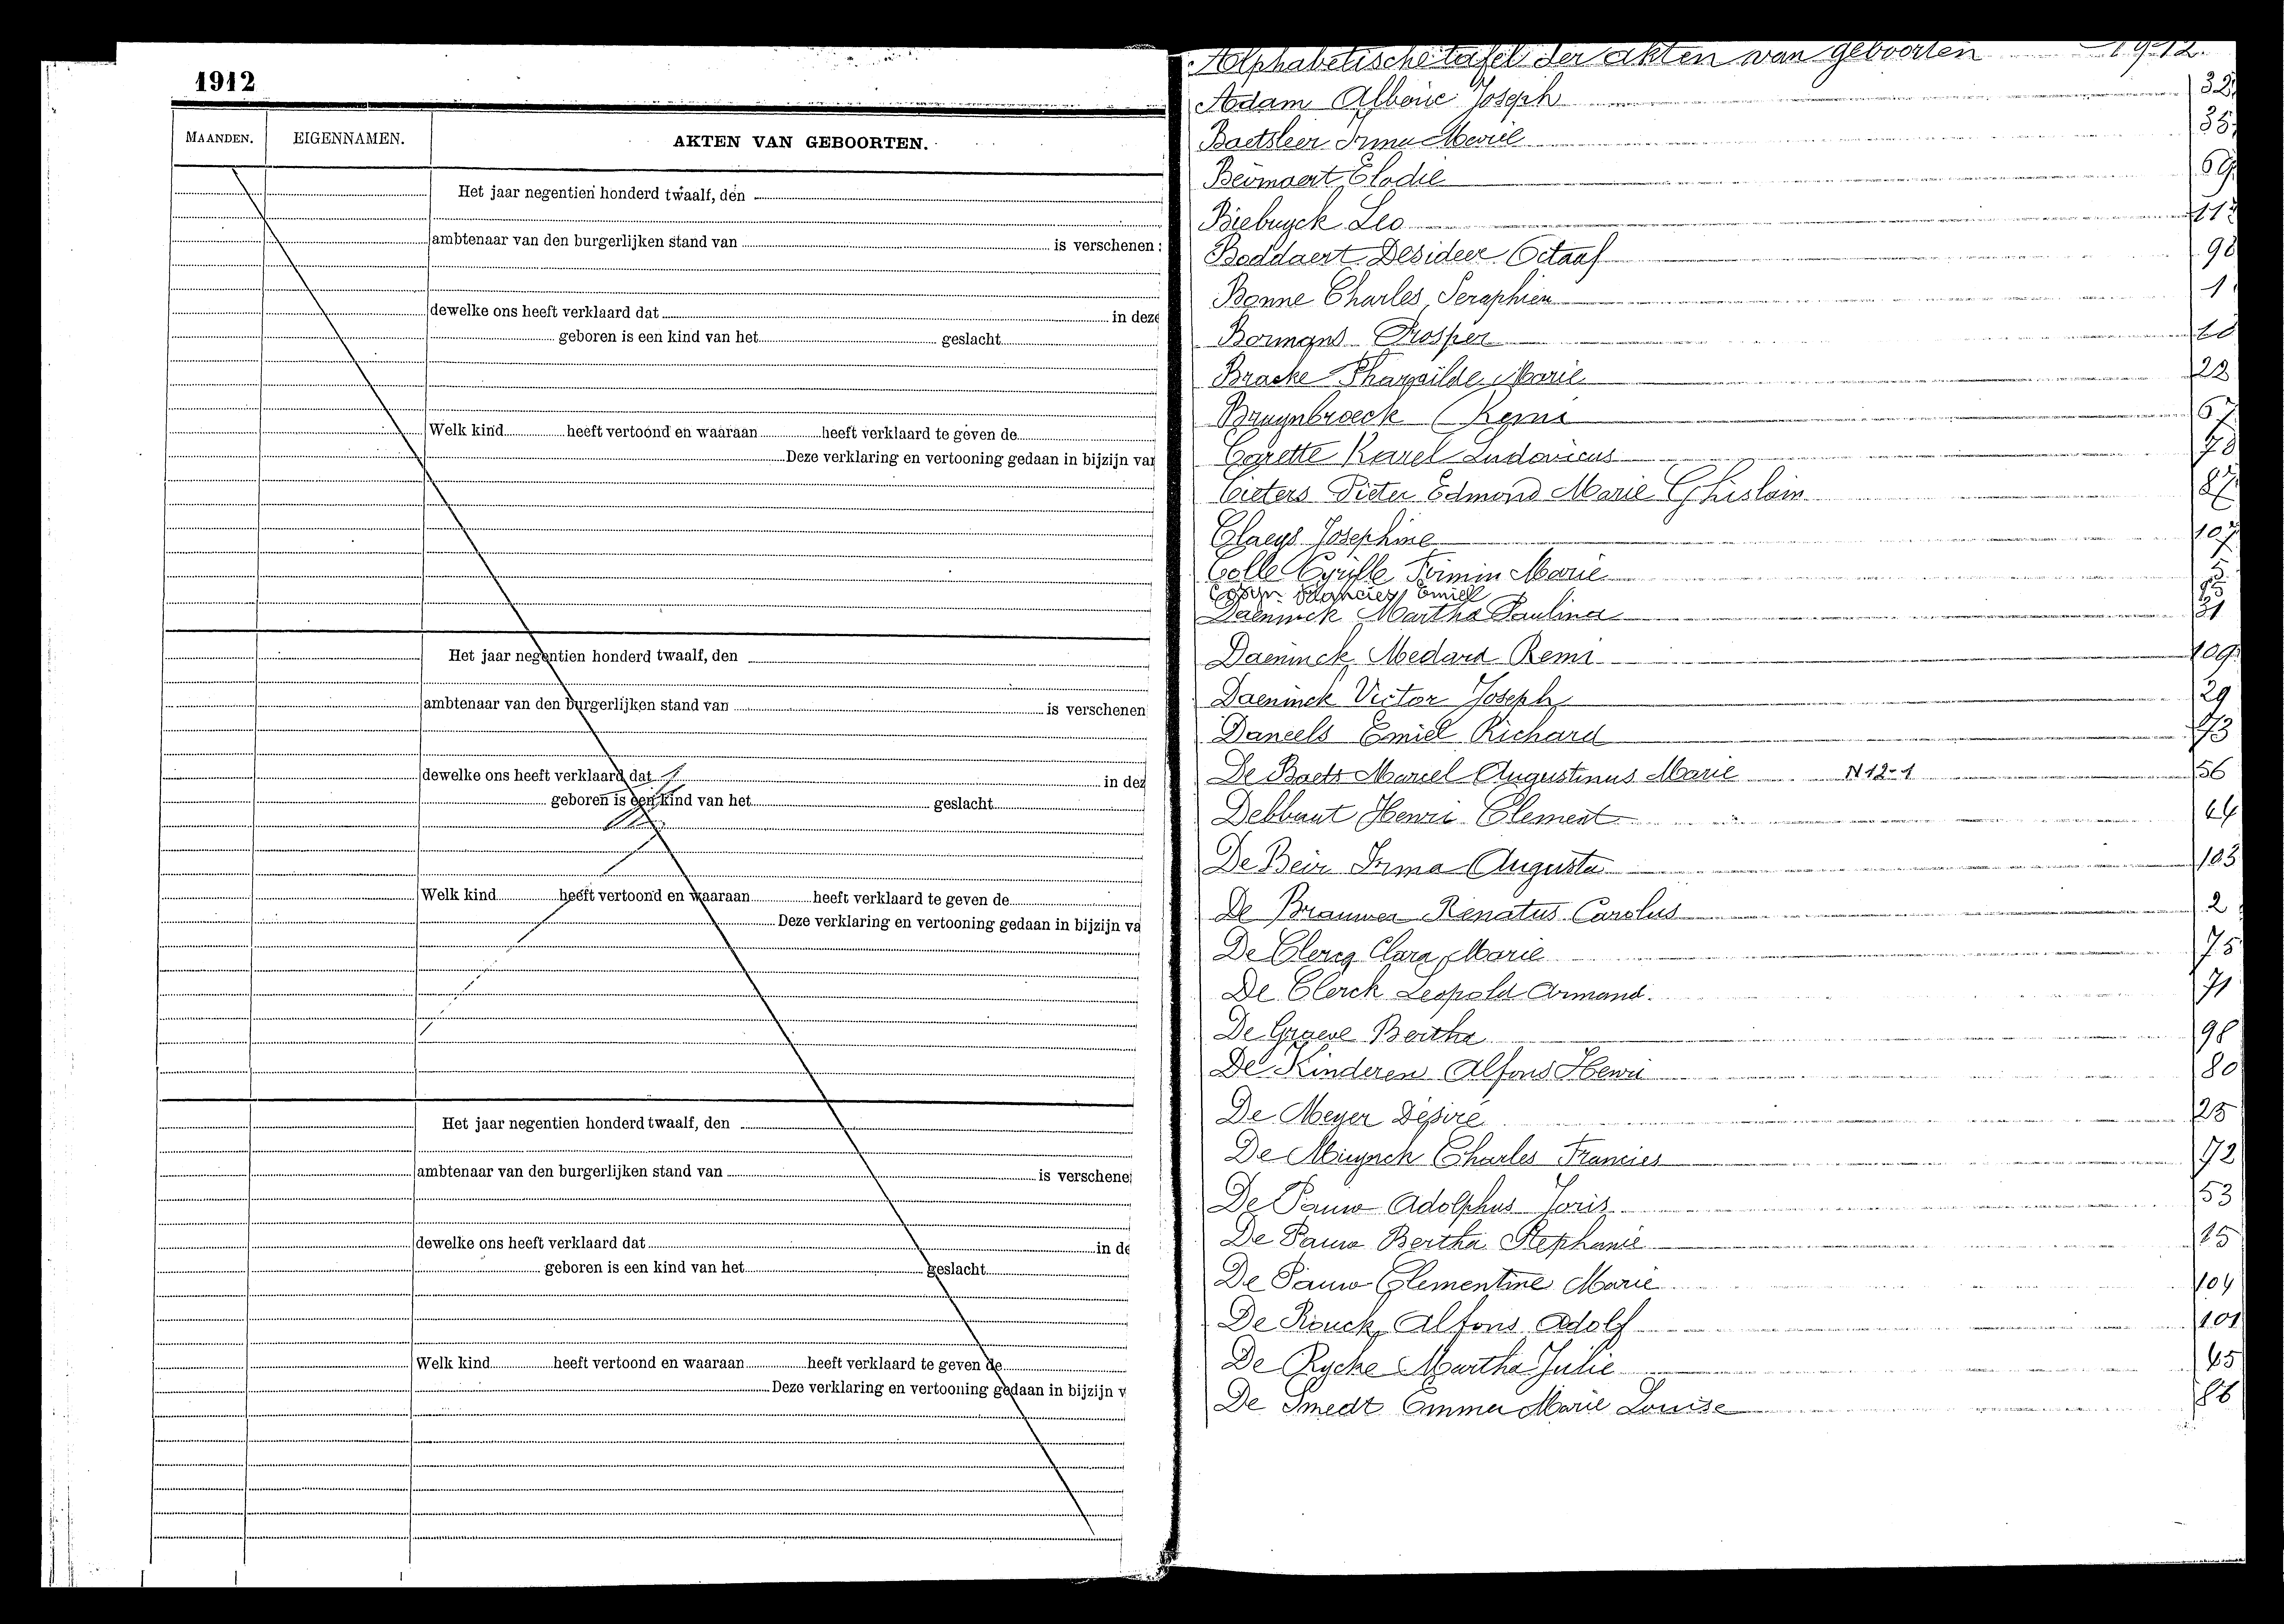 1912
MAANDEN. EIGENNAMEN. AKTEN VAN GEBOORTEN.
Het jaar negentien honderd twaalf, den
ambtenaar van den burgerlijken stand van is verschenen:
dewelke ons heeft verklaard dat in deze
geboren is een kind van het geslacht
Welk kind heeft vertoond en waaraan heeft verklaard te geven de
Deze verklaring en vertooning gedaan in bijzijn van
Het jaar negentien honderd twaalf, den
ambtenaar van den burgerlijken stand van is verschenen
dewelke ons heeft verklaard dat in dez
geboren is een kind van het geslacht
Welk kind heeft vertoond en waaraan heeft verklaard te geven de
Deze verklaring en vertooning gedaan in bijzijn va
Het jaar negentien honderd twaalf, den
ambtenaar van den burgerlijken stand van is verschene
dewelke ons heeft verklaard dat in de
geboren is een kind van het geslacht
Welk kind heeft vertoond en waaraan heeft verklaard te geven de
Deze verklaring en vertooning gedaan in bijzijn v
Alphabetische tafel der akten van geboorten 1912.
Adam Alberic Joseph 32
Baetsleer Irma Marie 35
Beirnaert Elodie 69
Biebuyck Leo 112
Boddaert Desideer Octaaf 90
Bonne Charles Seraphien 1
Bormans Prosper
Bracke Pharaïlde Marie 22
Bruynbroeck Remi 67
Carette Karel Ludovicus 78
Cieters Pieter Edmond Marie Ghislain 87
Claeys Josephine 107
Colle Cyrille Firmin Marie
Cosyn Francies Emiel
Daeninck Martha Paulina 31
Daeninck Medard Remi 109
Daeninck Victor Joseph 29
Daneels Emiel Richard 73
De Baets Marcel Augustinus Marie N 12-1 56
Debbaut Henri Clement 44
De Beir Irma Augusta 103
De Brauwer Renatus Carolus 2
De Clercq Clara Marie 75
De Clerck Leopold Armand. 71
De Graeve Bertha 98
De Kinderen Alfons Henri 80
De Meyer Désiré 25
De Muynck Charles Francies 72
De Pauw Adolphus Joris 53
De Pauw Bertha Stephanie 15
De Pauw Clementine Marie 104
De Rouck Alfons Adolf 101
De Rycke Martha Julie 45
De Smedt Emma Marie Louise 86